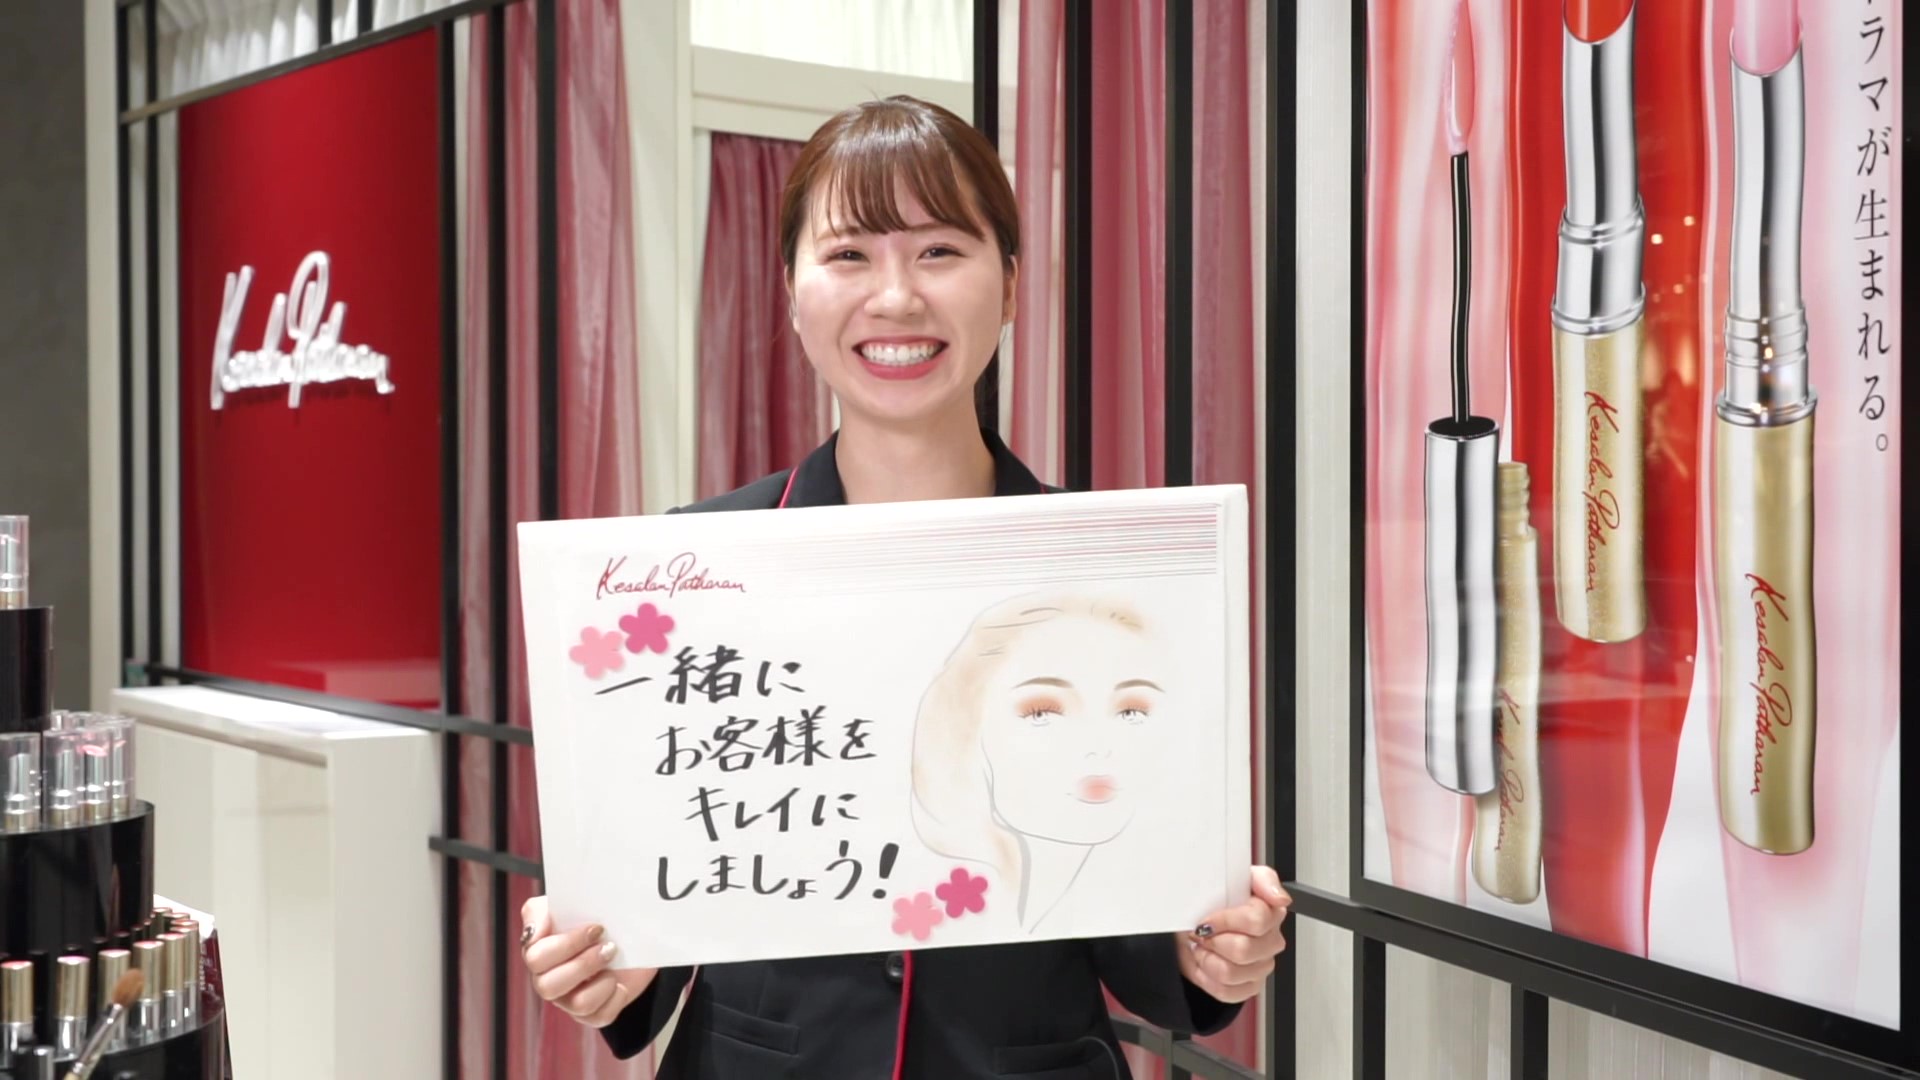 Kesalan Patharan
Kesalan Patharan
一緒に
お客様を
キレイに
しましょう!
ラマが生まれる。
Kesalan Patharan
Kesalan Patharan
Kesalan Patharan